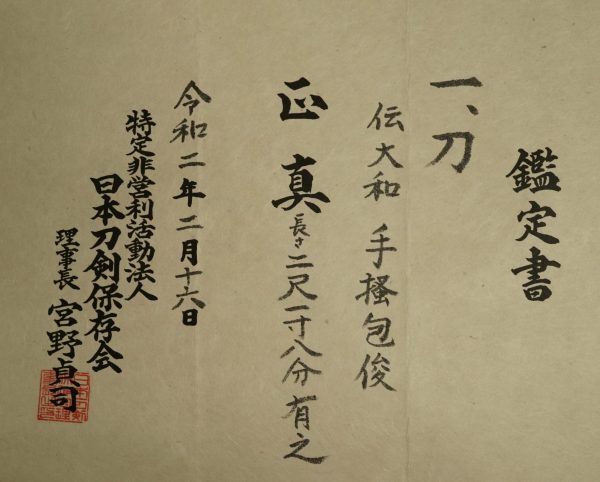 鑑定書
一、刀
伝大和 手掻包俊
正真
長さ二尺一寸八分有之
令和二年二月十六日
特定非営利活動法人
日本刀剣保存会
理事長 宮野貞司